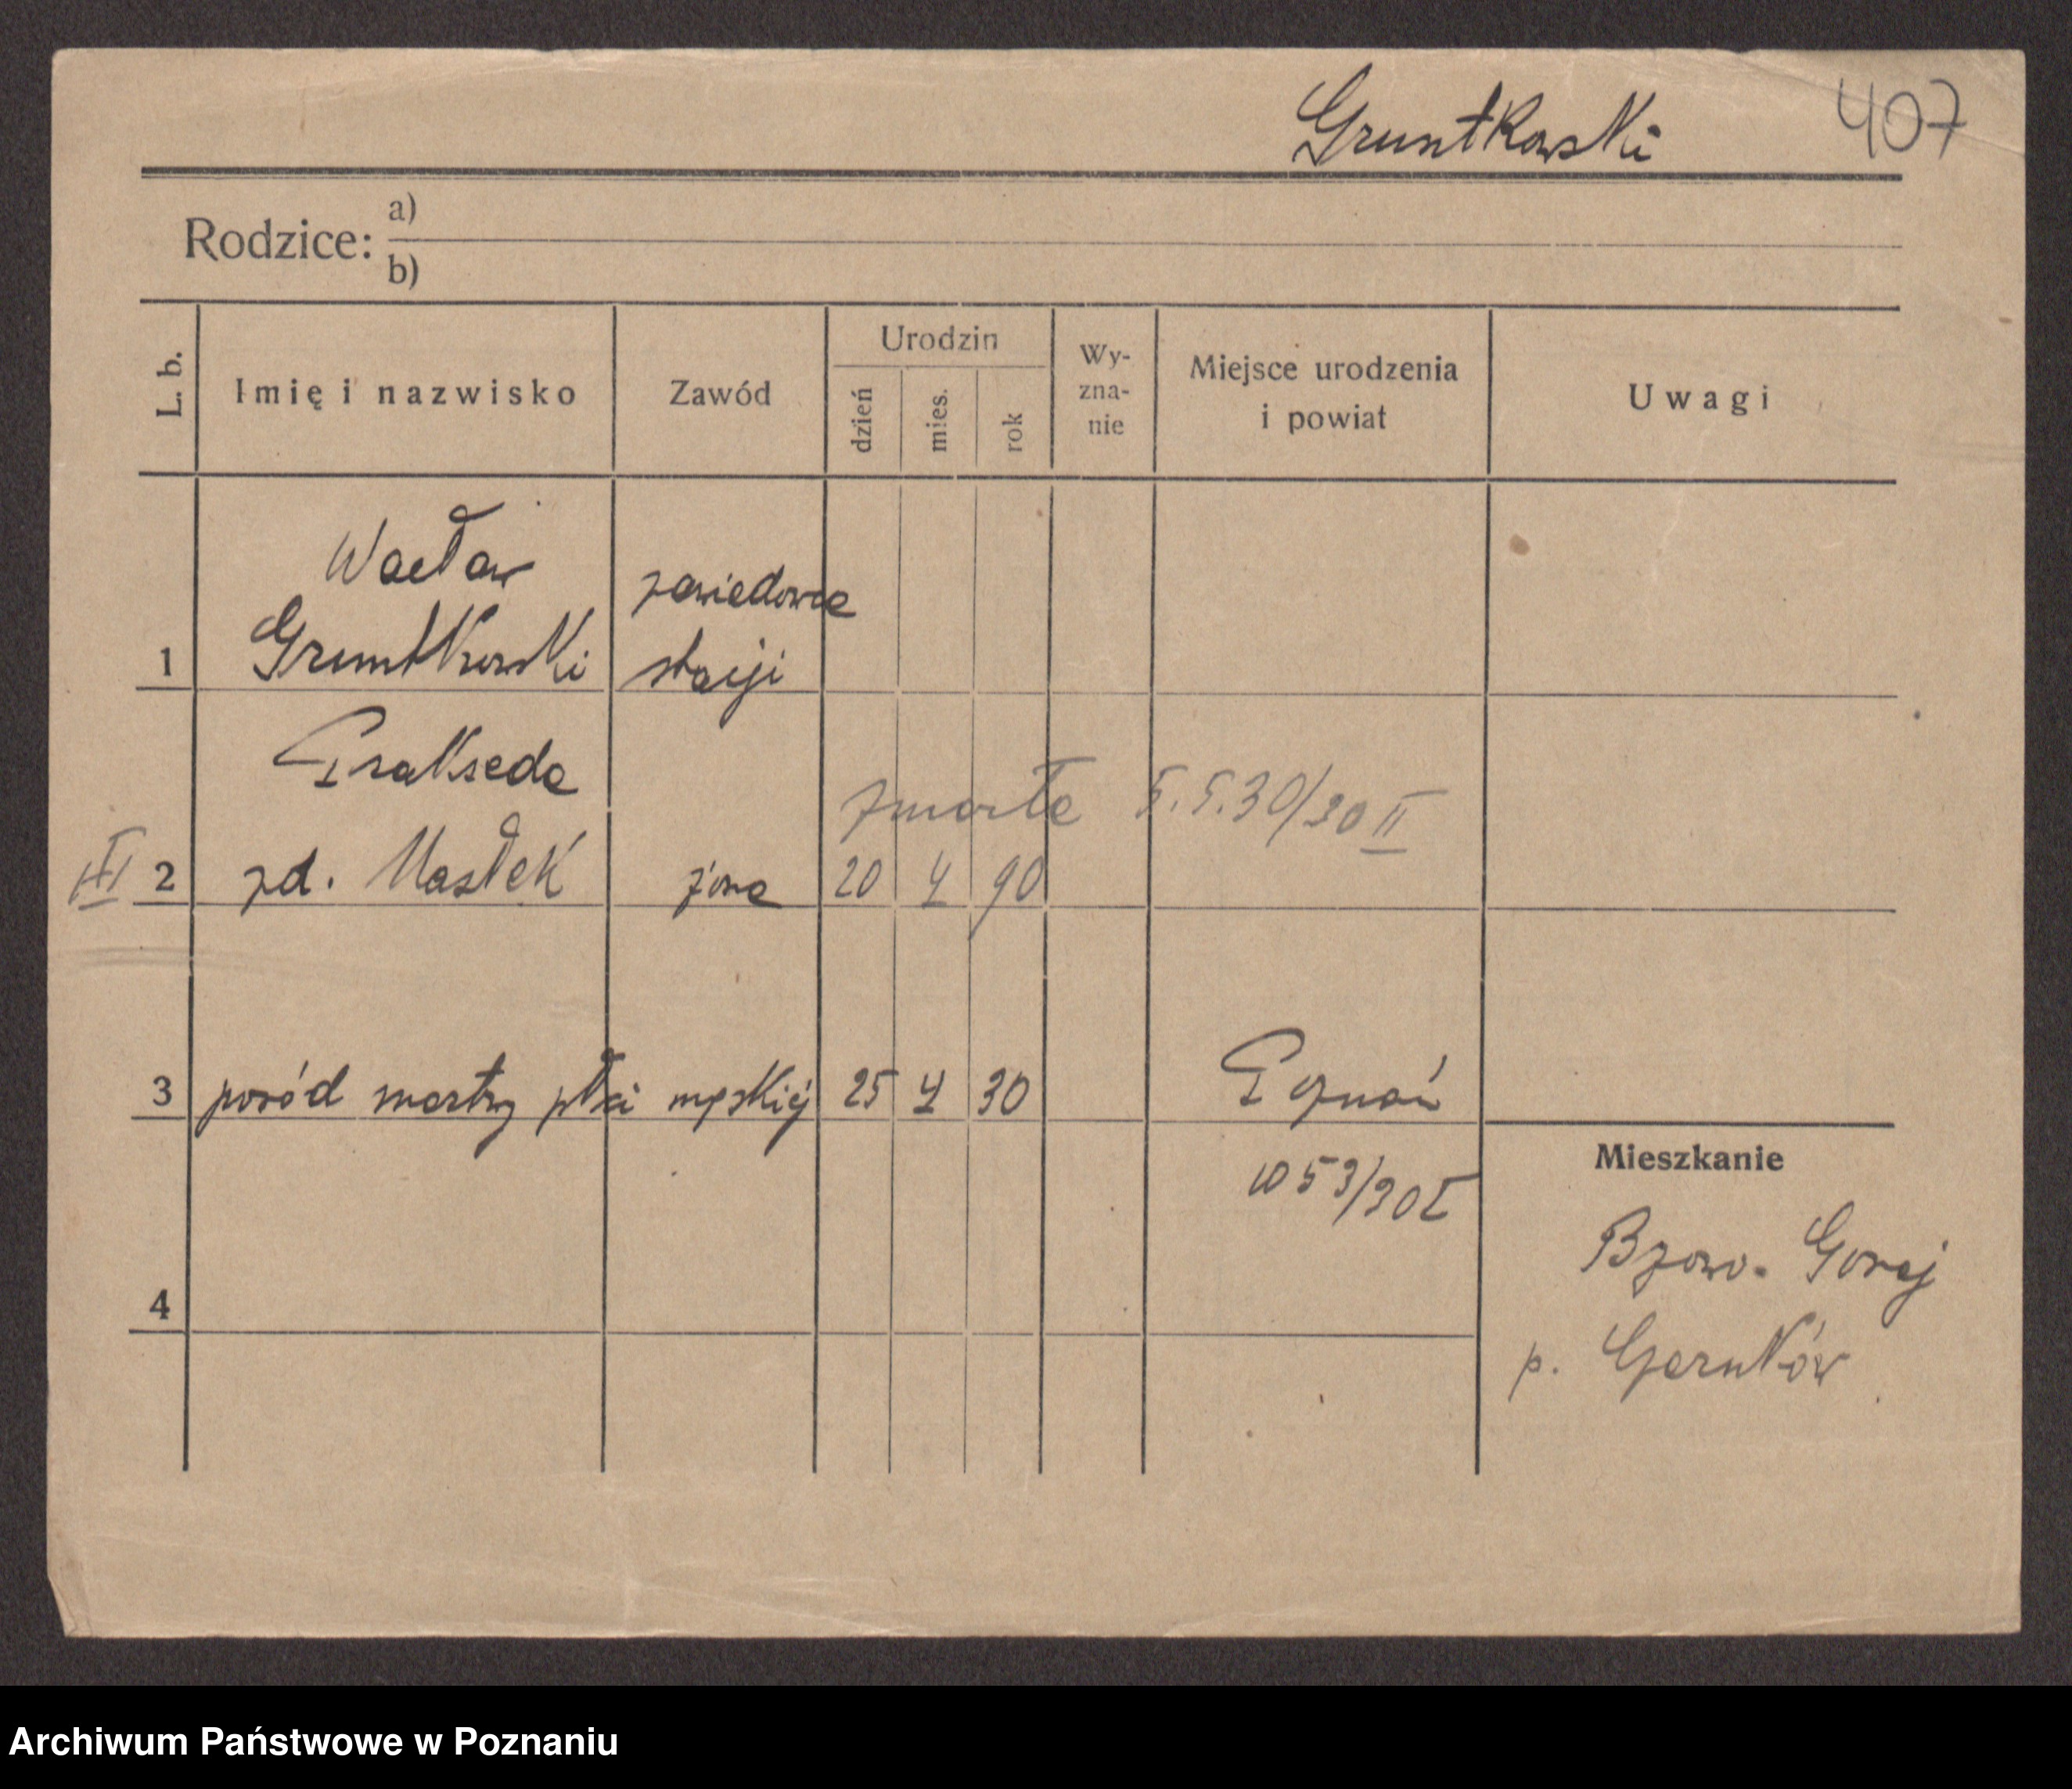 Gruntkowski 407
Rodzice: a)
b)
L. b. Imię i nazwisko Zawód Urodzin dzień mies. rok Wy-zna-nie Miejsce urodzenia i powiat Uwagi
Wacław zawiadowca
1 Gruntkowski stacji
Prakseda
zmarła 5.5.30/30 II
III 2 zd. Masłek żona 20 4 90
3 poród martwy płci męskiej 25 4 30 Poznań
Mieszkanie
53/30 I
Bzowo-Goraj
4
p. Czarnków
Archiwum Państwowe w Poznaniu